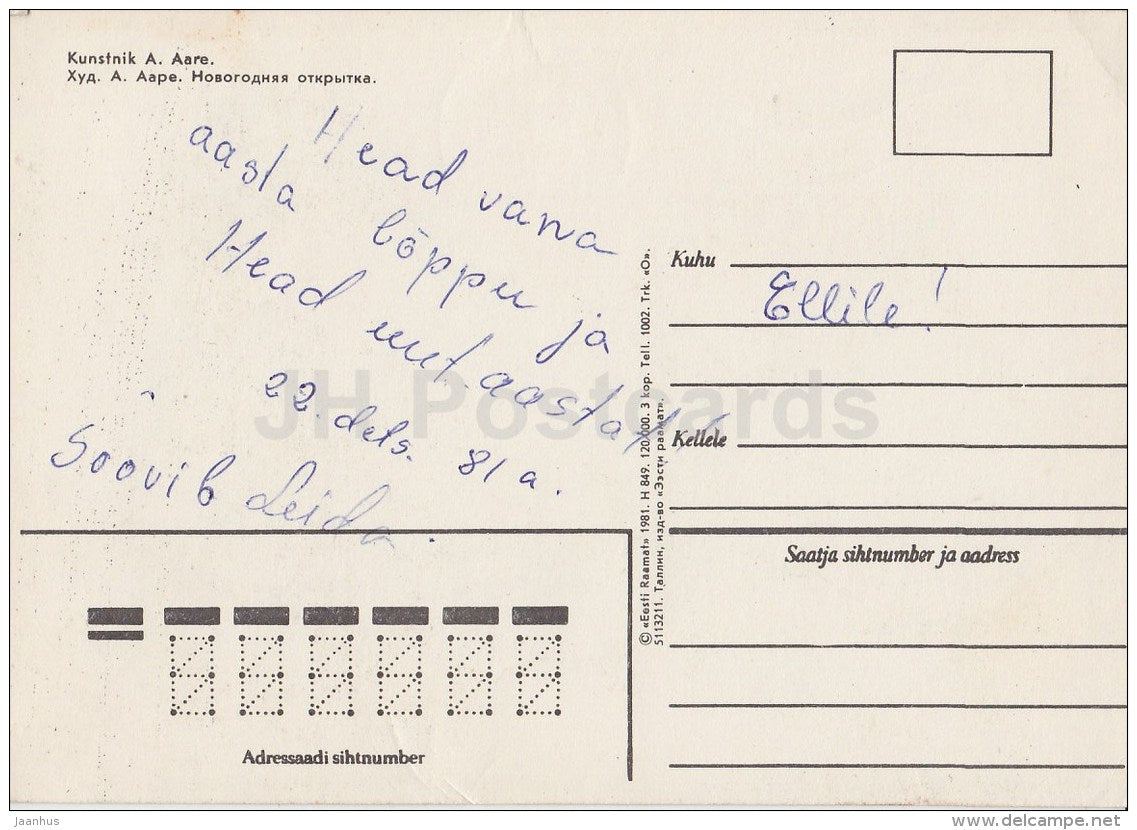 Kunstnik A. Aare.
Худ. А. Ааре. Новогодняя открытка.
Head vana
aasta lõppu ja
Head uut aastat
22. dets. 81 a.
Soovib Leida.
Kuhu
Ellile!
Kellele
Saatja sihtnumber ja aadress
Adressaadi sihtnumber
© «Eesti Raamat» 1981. H 849. 120 000. 3 kop. Tell. 1002. Trk. «O».
5113211. Таллин, изд-во «Ээсти раамат».
JH Postcards
Jaanhus
www.delcampe.net